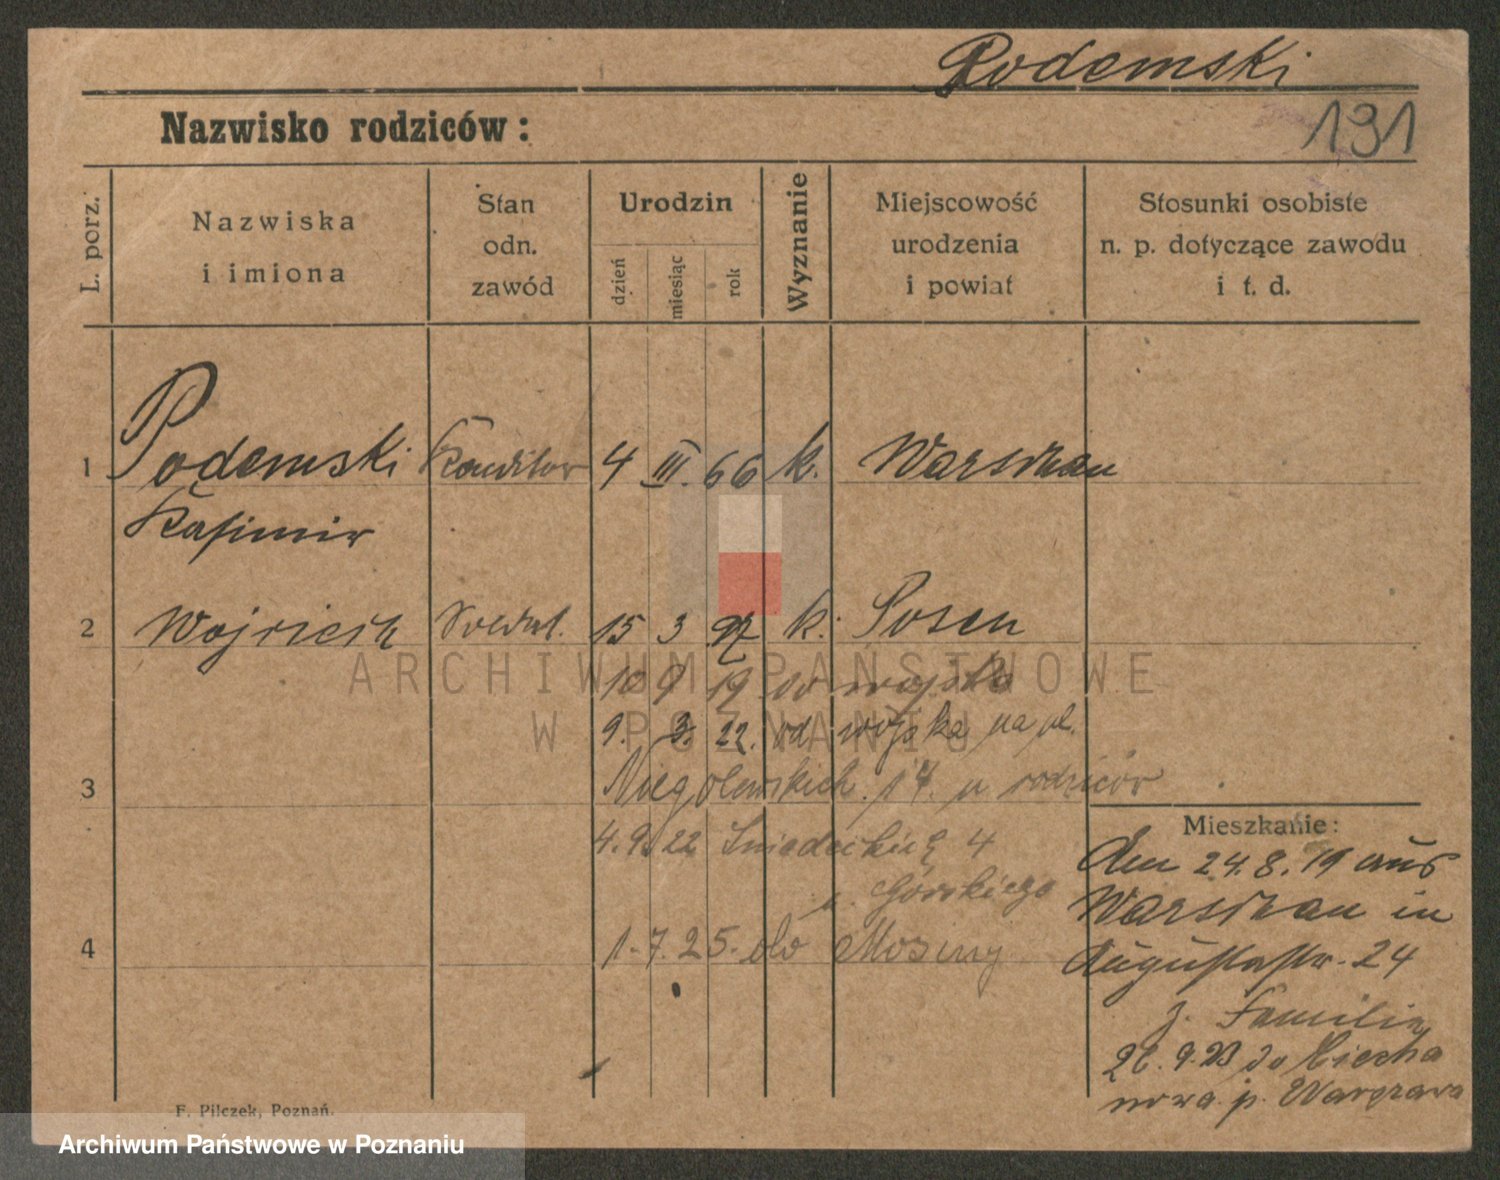 Podemski
Nazwisko rodziców:
131
L. porz.
Nazwiska
i imiona
Stan
odn.
zawód
Urodzin
dzień
miesiąc
rok
Wyznanie
Miejscowość
urodzenia
i powiat
Stosunki osobiste
n. p. dotyczące zawodu
i t. d.
1 Podemski Konditor 4 III. 66 k. Warschau
Kasimir
2 Wojciech Soldat. 15 3 97 k. Posen
ARCHIWUM PAŃSTWOWE
W POZNANIU
10 9 19 do wojska
9. 3. 22. od wojska na pl.
3 Niegolewskich 14. u rodziców
4.9.22 Śniadeckich 4
u. Górskiego
4 1.7.25. do Mosiny
Mieszkanie:
den 24.8.19 aus
Warschau in
Augustastr. 24
z. Familie
9.23 do Ciecha
nowa p. Warszawa
F. Pilczek, Poznań.
Archiwum Państwowe w Poznaniu